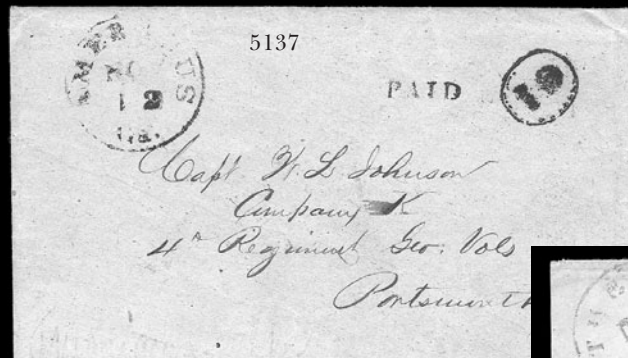 5137
AMERICUS
NOV
12
Ga.
PAID
10
Capt W. L Johnson
Company K
4th Regiment Geo. Vols
Portsmouth